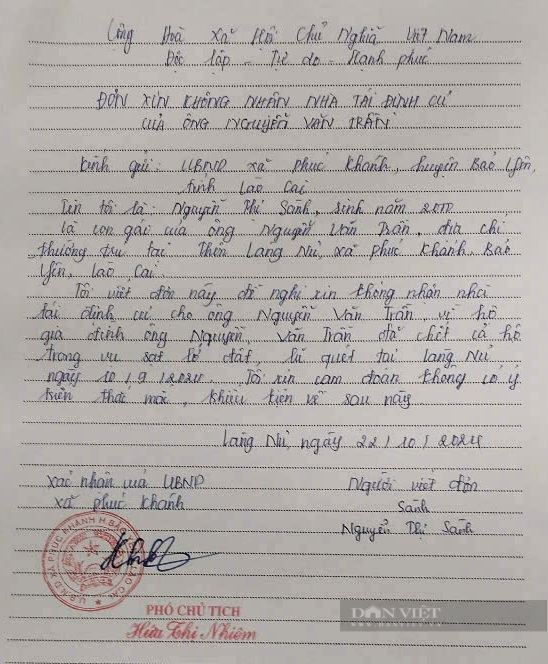 Cộng Hoà Xã Hội Chủ Nghĩa Việt Nam
Độc lập - Tự do - Hạnh phúc
ĐƠN XIN KHÔNG NHẬN NHÀ TÁI ĐỊNH CƯ
CỦA ÔNG NGUYỄN VĂN TRẦN
Kính gửi: UBND xã Phúc Khánh, huyện Bảo Yên,
tỉnh Lào Cai
Tên tôi là: Nguyễn Thị Sành, sinh năm 2000
là con gái của ông Nguyễn Văn Trần, địa chỉ
thường trú tại Thôn Làng Nủ, xã Phúc Khánh, Bảo
Yên, Lào Cai
Tôi viết đơn này đề nghị xin không nhận nhà
tái định cư cho ông Nguyễn Văn Trần, vì hộ
gia đình ông Nguyễn Văn Trần đã chết cả hộ
trong vụ sạt lở đất, lũ quét tại làng Nủ
ngày 10/9/2024. Tôi xin cam đoan không có ý
kiến thắc mắc, khiếu kiện về sau này.
Làng Nủ, ngày 22/10/2024
Xác nhận của UBND
xã Phúc Khánh
Người viết đơn
Sành
Nguyễn Thị Sành
U.B.N.D XÃ PHÚC KHÁNH H.BẢO
PHÓ CHỦ TỊCH
Hứa Thị Nhiệm
DÂN VIỆT